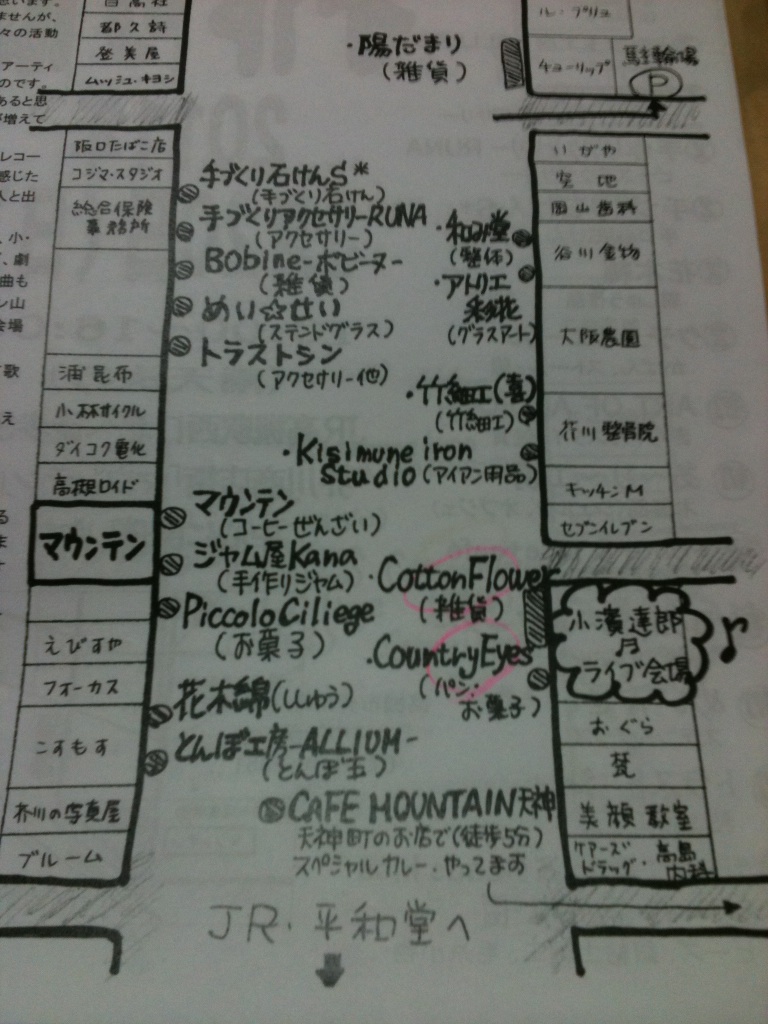 都久詩
登美屋
ムッシュ・キヨシ
ませんが、
々の活動
アーティ
のです。
あると思
が増えて
レコー
感じた
人と出
小・
劇
曲も
ン山
会場
歌
え
阪口たばこ店
コジマ・スタジオ
総合保険
事務所
浦昆布
小林サイクル
ダイコク電化
高槻ロイド
マウンテン
えびすや
フォーカス
こすもす
芥川の写真屋
ブルーム
・陽だまり
(雑貨)
手づくり石けんS*
(手づくり石けん)
手づくりアクセサリーRUNA
(アクセサリー)
Bobine-ボビーヌ-
(雑貨)
めい☆せい
(ステンドグラス)
トラストシン
(アクセサリー他)
・和み堂
(整体)
・アトリエ
彩花
(グラスアート)
・竹細工(喜)
(竹細工)
・Kisimune iron
Studio(アイアン用品)
マウンテン
(コーヒーぜんざい)
ジャム屋Kana
(手作りジャム)
・CottonFlower
(雑貨)
Piccolo Ciliege
(お菓子)
・CountryEyes
(パン・
お菓子)
花木綿(ししゅう)
とんぼ工房-ALLIUM-
(とんぼ玉)
CAFE MOUNTAIN天神
天神町のお店で(徒歩5分)
スペシャルカレー・やってます
JR・平和堂へ
ル・プリュ
チューリップ
駐輪場
P
いがや
空地
岡山歯科
谷川金物
大阪農園
芥川整骨院
キッチンM
セブンイレブン
小濱達郎
ライブ会場
おぐら
梵
美顔教室
ケアーズ
ドラッグ・高島
内科